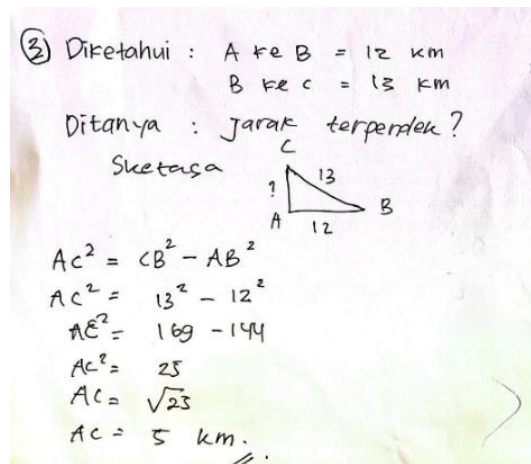 ③ Diketahui : A ke B = 12 km
B ke C = 13 km
Ditanya : Jarak terpendek ?
Sketasa
C
? 13
A 12 B
AC² = CB² - AB²
AC² = 13² - 12²
AC² = 169 - 144
AC² = 25
AC = √25
AC = 5 km.